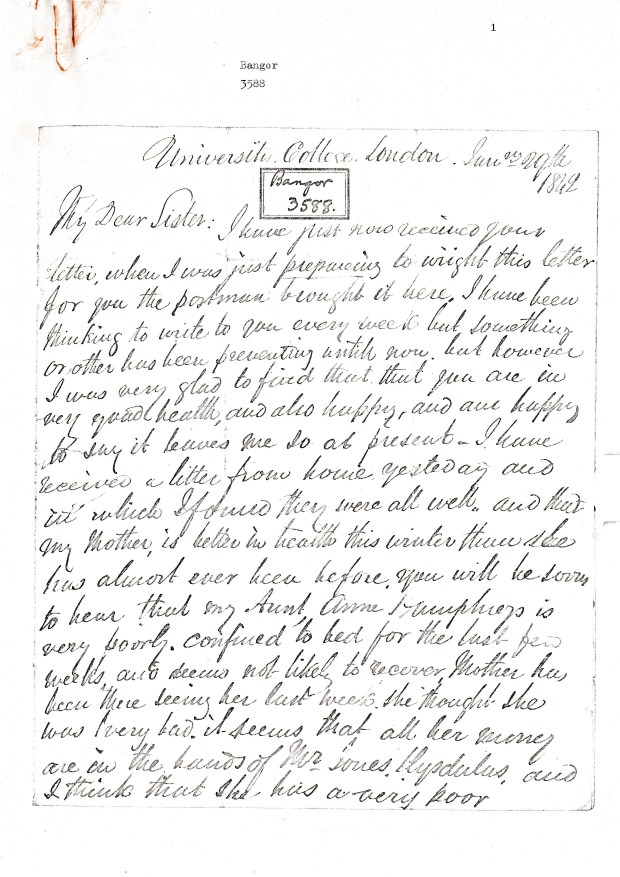 1
Bangor
3588
University College London. Jany 29th
1842
Bangor
3588.
My Dear Sister: I have just now received your
letter, when I was just preparing to wright this letter
for you the postman brought it here. I have been
thinking to write to you every week but something
or other has been preventing untill now. but however
I was very glad to find that that you are in
very good health, and also happy, and am happy
to say it leaves me so at present - I have
received a litter from home yesterday and
in which I found they were all well, and that
my Mother, is better in health this winter than she
has almost ever been before. you will be sorry
to hear that my Aunt, Anne Humphreys is
very poorly. confined to bed for the last few
weeks, and seems not likely to recover, Mother has
been there seeing her last week. she thought she
was very bad. it seems that all her money
are in the hands of Mr Jones. and
I think that she has a very poor